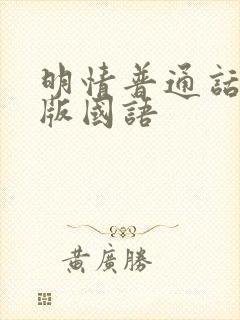 明情普通話
版國語
黃廣勝